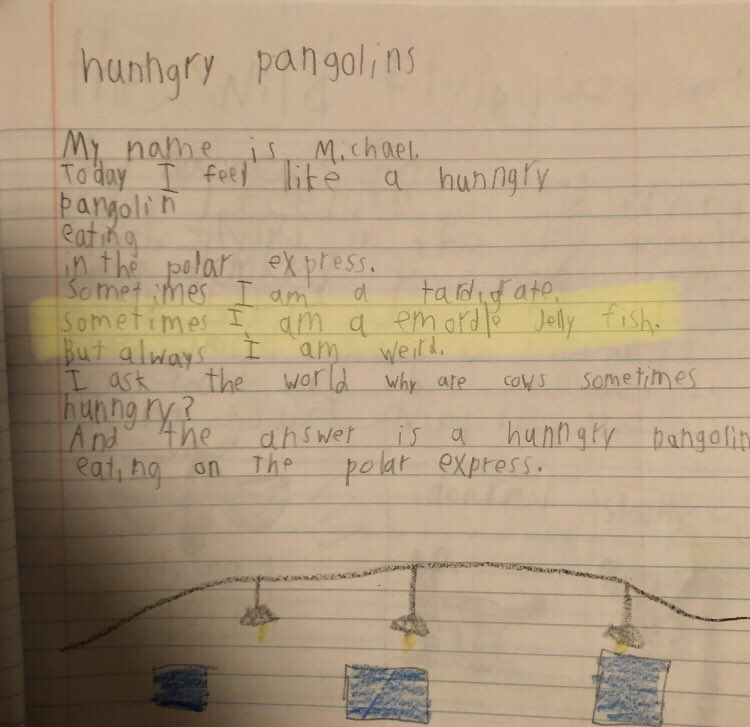 hunhgry pangolins
My name is Michael.
Today I feel like a hunngry
pangolin
eating
in the polar express.
Sometimes I am a tardigrate.
Sometimes I am a emordle Jelly fish.
But always I am weird.
I ask the world why are cows sometimes
hunngry?
And the answer is a hunngry pangolin
eating on The polar express.